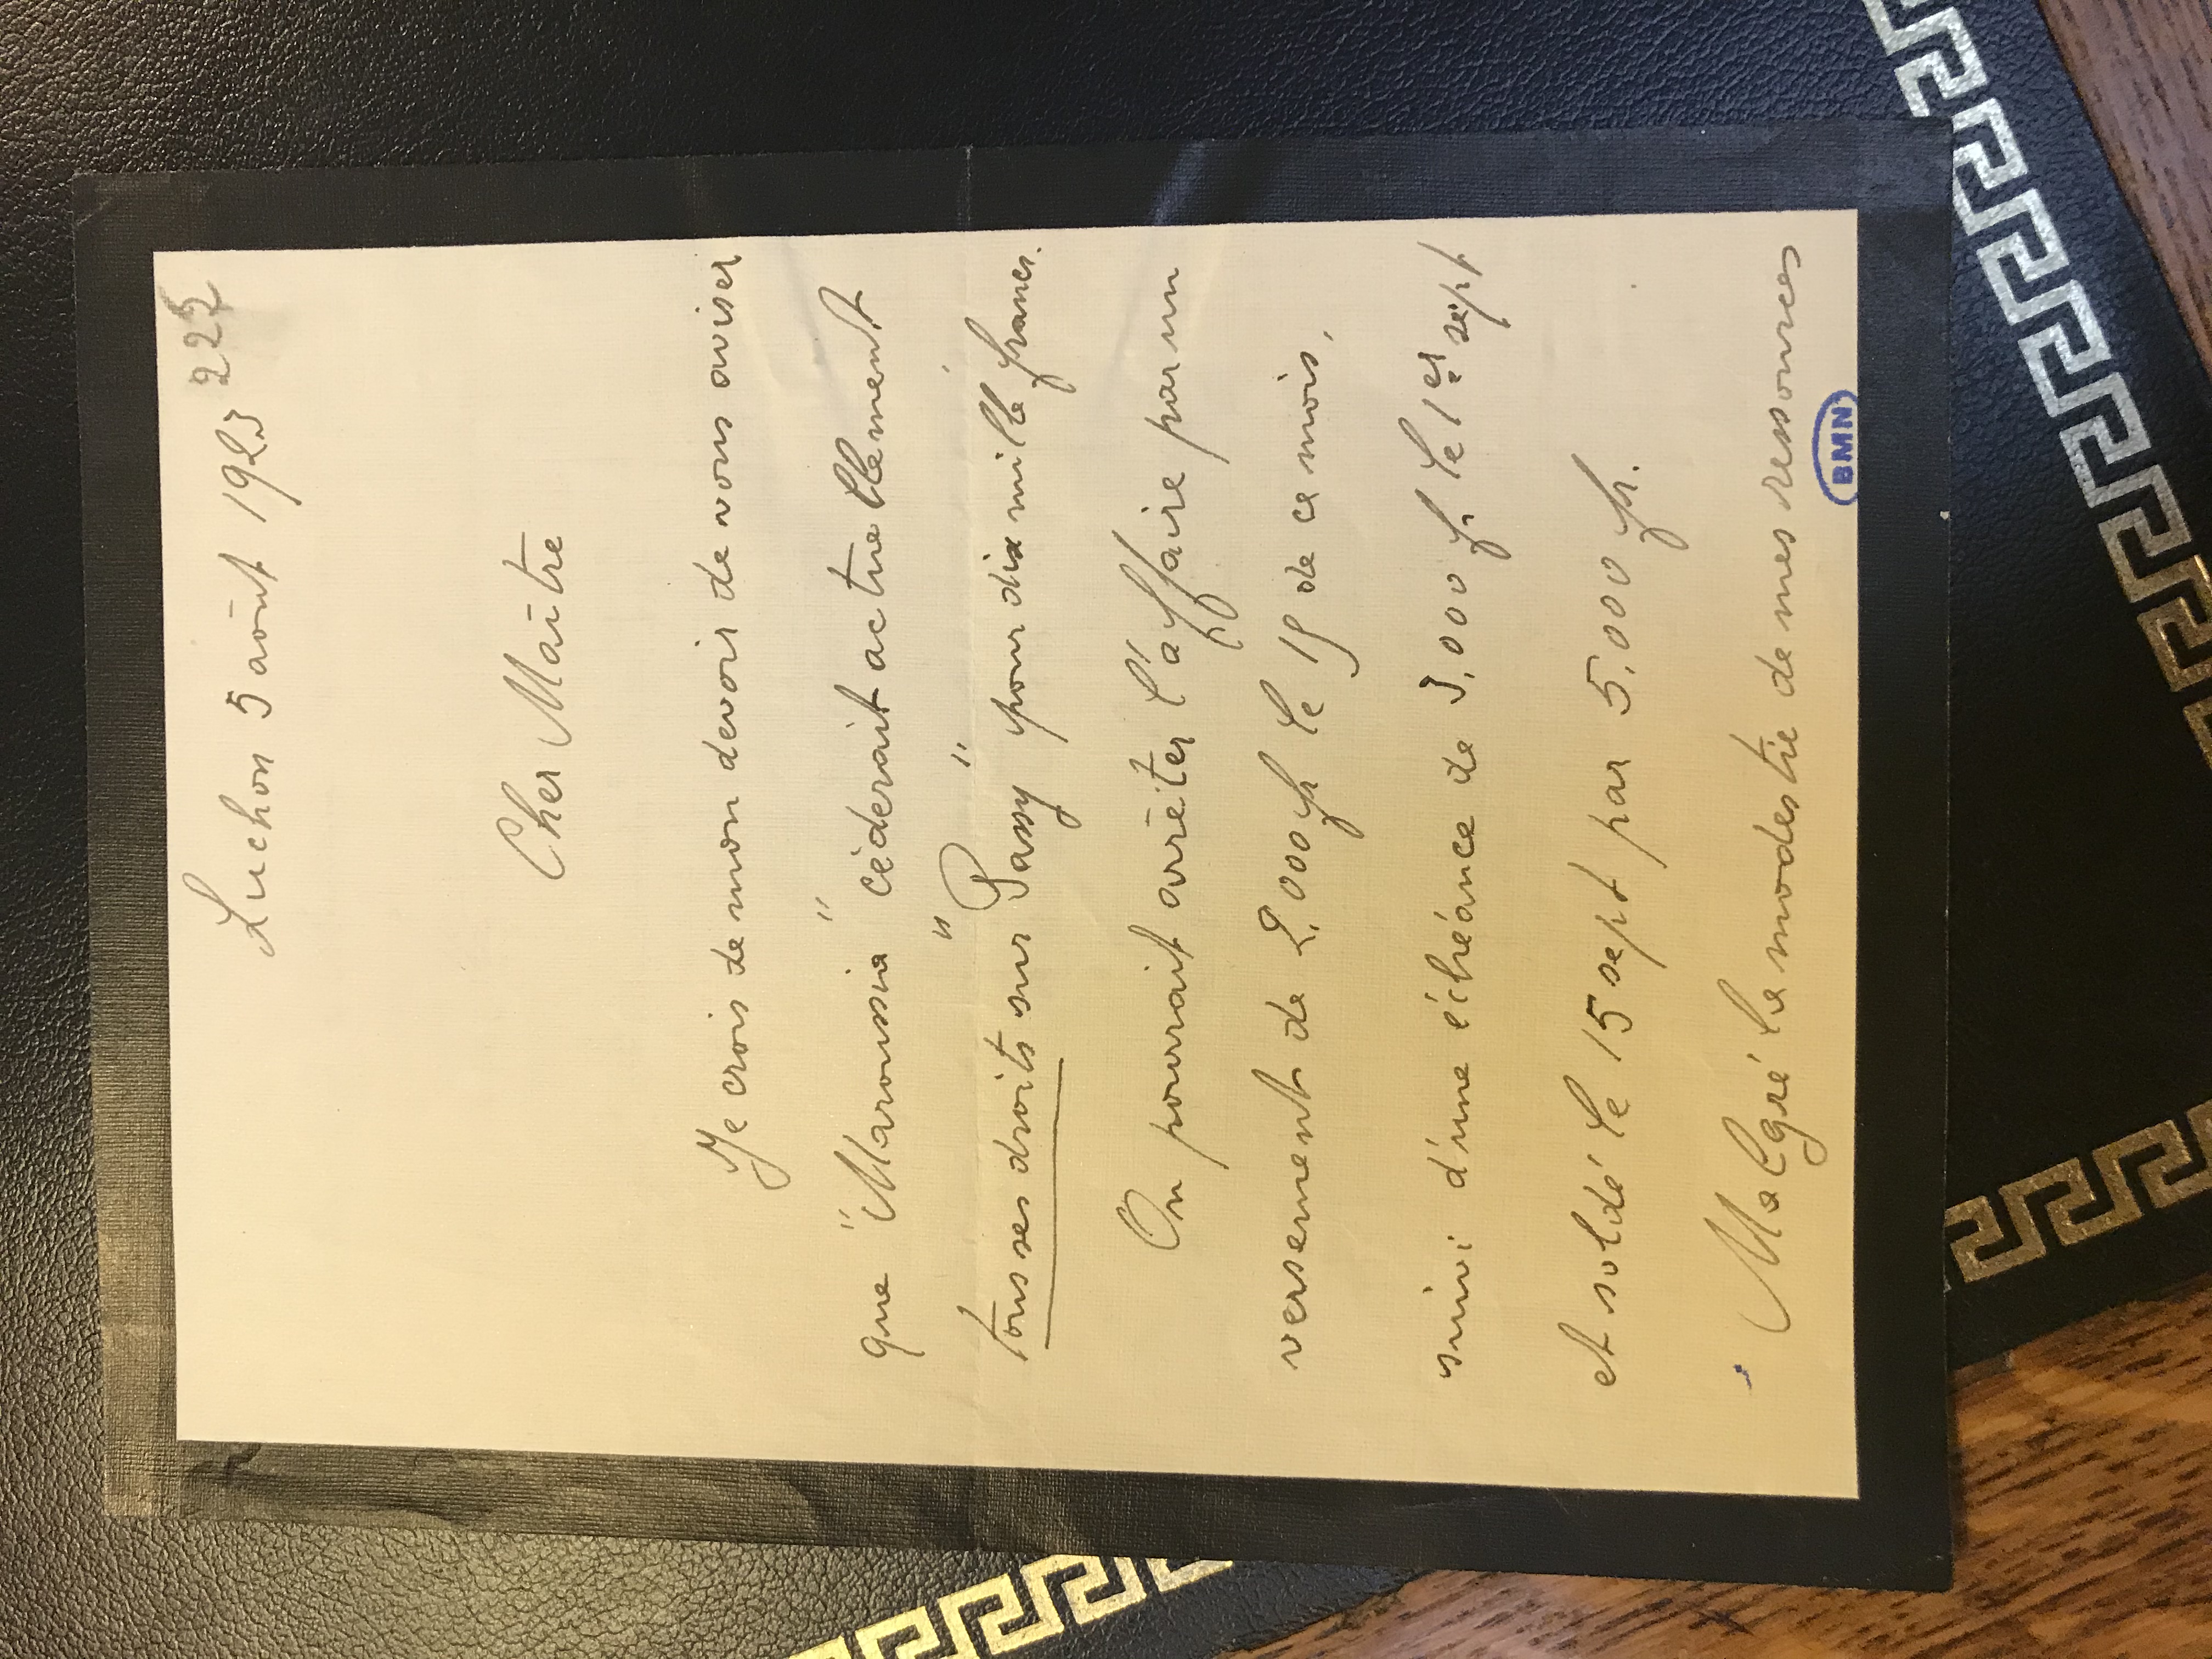 Luchon 5 août 1923
Cher Maître
Je crois de mon devoir de vous aviser
que "Maroussia" céderait actuellement
tous ses droits sur "Passy" pour dix mille francs.
On pourrait arrêter l'affaire par un
versement de 2.000 fr le 15 de ce mois,
suivi d'une échéance de 3.000 fr le 1er sept
et soldé le 15 sept par 5.000 fr.
Malgré la modestie de mes ressources
BMN